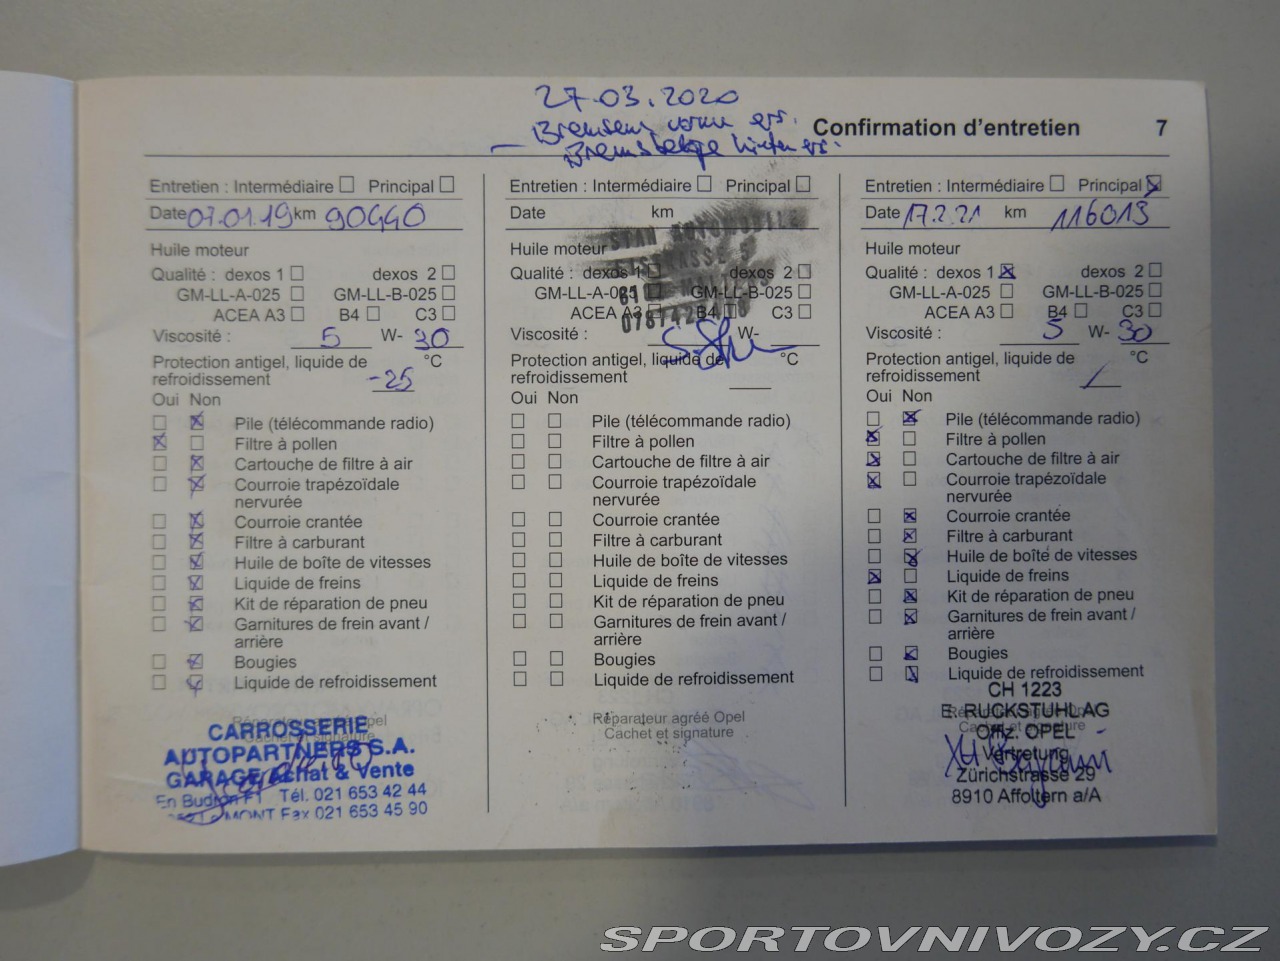 27.03.2020
Bremsen vorn ers.
Bremsbeläge hinten ers.
Confirmation d'entretien 7
Entretien : Intermédiaire Principal
Date 07.01.19 km 90440
Huile moteur
Qualité : dexos 1 dexos 2
GM-LL-A-025 GM-LL-B-025
ACEA A3 B4 C3
Viscosité : 5 W- 30
Protection antigel, liquide de °C
refroidissement -25
Oui Non
Pile (télécommande radio)
Filtre à pollen
Cartouche de filtre à air
Courroie trapézoïdale
nervurée
Courroie crantée
Filtre à carburant
Huile de boîte de vitesses
Liquide de freins
Kit de réparation de pneu
Garnitures de frein avant /
arrière
Bougies
Liquide de refroidissement
Réparateur agréé Opel
Cachet et signature
CARROSSERIE
AUTOPARTNERS S.A.
GARAGE Achat & Vente
En Budron F1 Tél. 021 653 42 44
MONT Fax 021 653 45 90
Entretien : Intermédiaire Principal
Date km
STAN AUTOMOBILE
5
Huile moteur
Qualité : dexos 1 dexos 2
GM-LL-A-025 GM-LL-B-025
ACEA A3 B4 C3
Viscosité : W-
Protection antigel, liquide de °C
refroidissement
Oui Non
Pile (télécommande radio)
Filtre à pollen
Cartouche de filtre à air
Courroie trapézoïdale
nervurée
Courroie crantée
Filtre à carburant
Huile de boîte de vitesses
Liquide de freins
Kit de réparation de pneu
Garnitures de frein avant /
arrière
Bougies
Liquide de refroidissement
Réparateur agréé Opel
Cachet et signature
Entretien : Intermédiaire Principal
Date 17.2.21 km 116013
Huile moteur
Qualité : dexos 1 dexos 2
GM-LL-A-025 GM-LL-B-025
ACEA A3 B4 C3
Viscosité : 5 W- 30
Protection antigel, liquide de °C
refroidissement /
Oui Non
Pile (télécommande radio)
Filtre à pollen
Cartouche de filtre à air
Courroie trapézoïdale
nervurée
Courroie crantée
Filtre à carburant
Huile de boîte de vitesses
Liquide de freins
Kit de réparation de pneu
Garnitures de frein avant /
arrière
Bougies
Liquide de refroidissement
CH 1223
E. RUCKSTUHL AG
Offiz. OPEL
Vertretung
Zürichstrasse 29
8910 Affoltern a/A
SPORTOVNIVOZY.CZ